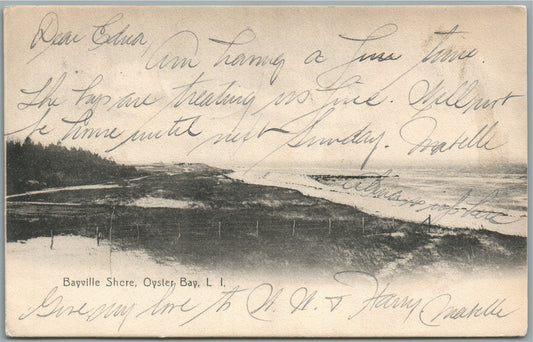 Dear Edna
Am having a fine time.
The boys are treating us fine. Will not
be home until next Sunday.
Mabelle
Bayville Shore, Oyster Bay, L. I.
Give my love to W. W. & Harry Mabelle